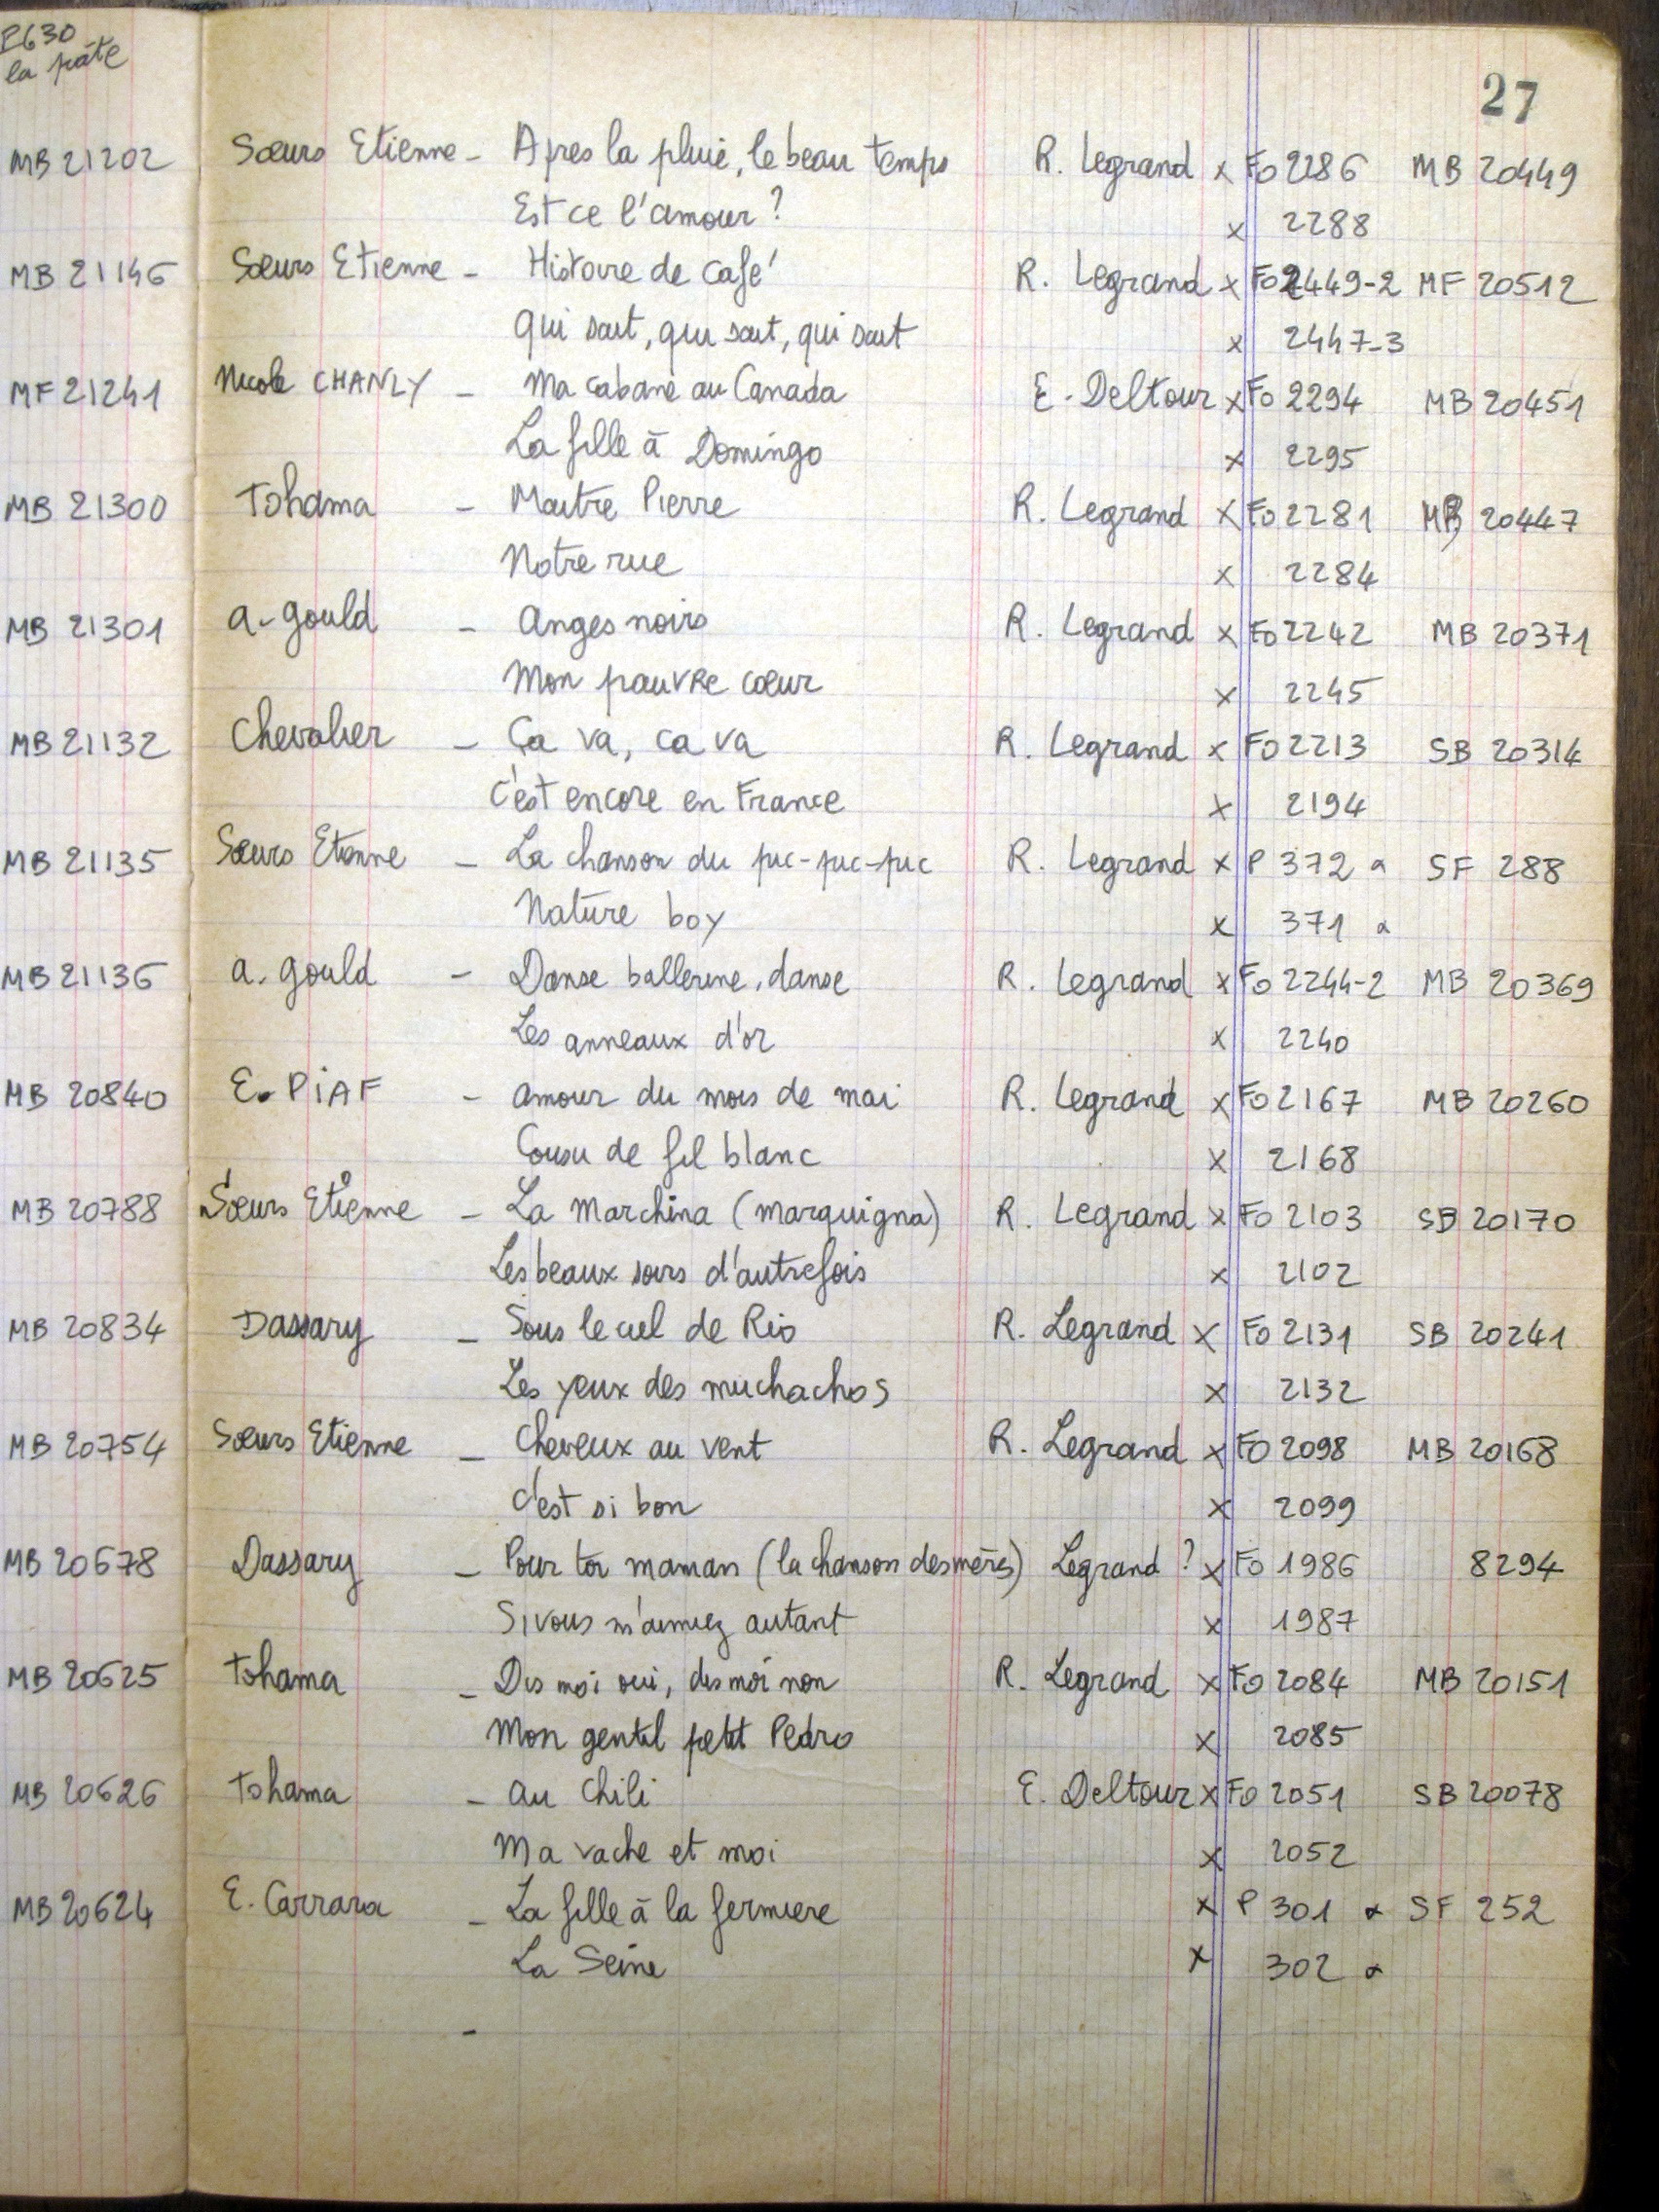 P630
la pâte
27
MB 21202 Sœurs Etienne - Apres la pluie, le beau temps R. Legrand x Fo 2286 MB 20449
Est ce l'amour ? x 2288
MB 21146 Sœurs Etienne - Histoire de café R. Legrand x Fo 2449-2 MF 20512
qui sait, qui sait, qui sait x 2447-3
MF 21241 Nicole CHANLY - Ma cabane au Canada E. Deltour x Fo 2294 MB 20451
La fille à Domingo x 2295
MB 21300 Tohama - Maitre Pierre R. Legrand x Fo 2281 MB 20447
Notre rue x 2284
MB 21301 a. gould - Anges noirs R. Legrand x Fo 2242 MB 20371
Mon pauvre cœur x 2245
MB 21132 Chevalier - Ça va, ca va R. Legrand x Fo 2213 SB 20314
c'est encore en France x 2194
MB 21135 Sœurs Etienne - La chanson du pic-pic-pic R. Legrand x P 372 α SF 288
Nature boy x 371 α
MB 21136 a. gould - Danse ballerine, danse R. Legrand x Fo 2244-2 MB 20369
Les anneaux d'or x 2240
MB 20840 E. PIAF - amour du mois de mai R. Legrand x Fo 2167 MB 20260
Cousu de fil blanc x 2168
MB 20788 Sœurs Etienne - La Marchina (marquigna) R. Legrand x Fo 2103 SB 20170
Les beaux soirs d'autrefois x 2102
MB 20834 Dassary - Sous le ciel de Rio R. Legrand x Fo 2131 SB 20241
Les yeux des muchachos x 2132
MB 20754 Sœurs Etienne - Cheveux au vent R. Legrand x Fo 2098 MB 20168
c'est si bon x 2099
MB 20678 Dassary - Pour toi maman (la chanson des mères) Legrand ? x Fo 1986 8294
Si vous m'aimiez autant x 1987
MB 20625 Tohama - Dis moi oui, dis moi non R. Legrand x Fo 2084 MB 20151
Mon gentil petit Pedro x 2085
MB 20626 Tohama - Au Chili E. Deltour x Fo 2051 SB 20078
Ma vache et moi x 2052
MB 20624 E. Carrara - La fille à la fermiere x P 301 α SF 252
La Seine x 302 α
-